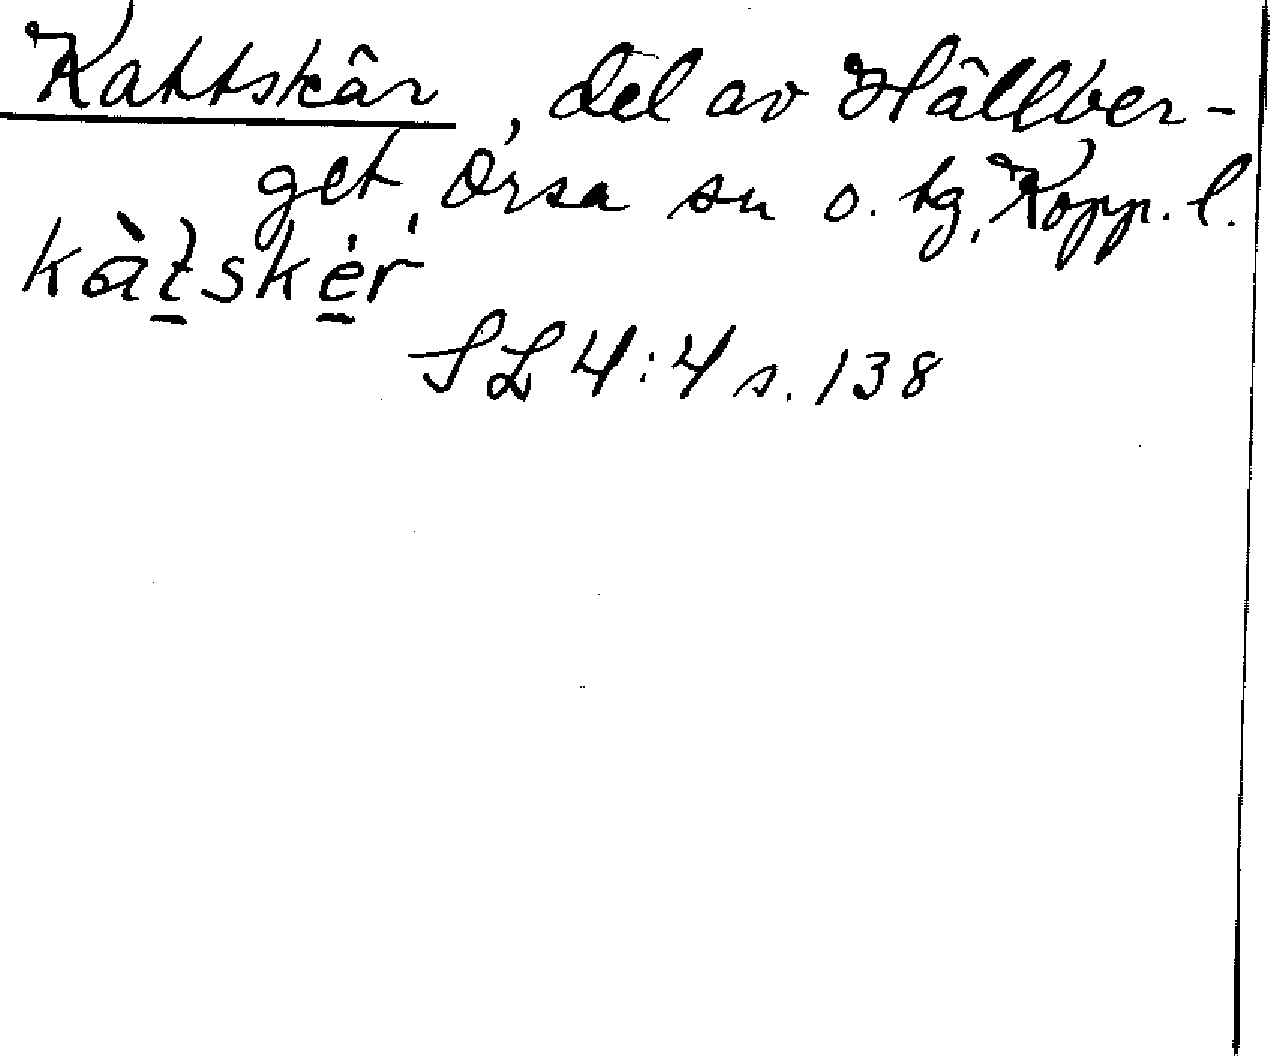 Kattskär, del av Hällber-
get, Orsa sn o. tg, Kopp. l.
kàt̠ske̠r
SL 4:4 s. 138